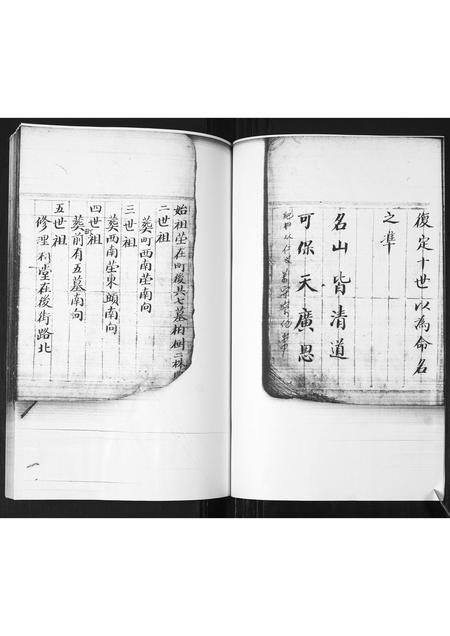 復定十世以為命名
之準
名山皆清道
可保天廣恩
始祖塋在町後共七墓柏樹二株
二世祖
葬町西南塋南向
三世祖
葬西南塋東頭南向
四世祖
葬町前有五墓南向
五世祖
修理祠堂在後街路北